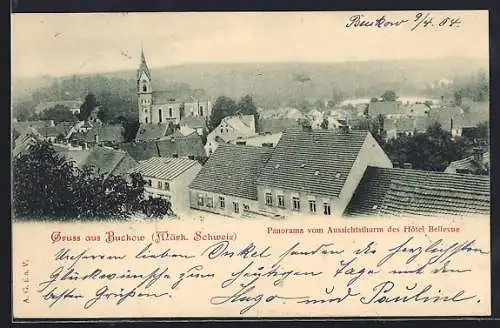 Buckow 9/4. 04.
Gruss aus Buckow (Märk. Schweiz)
Panorama vom Aussichtsturm des Hôtel Bellevue
Unserem lieben Onkel senden die herzlichsten
Glückwünsche zum heutigen Tage mit den
besten Grüßen,
Hugo und Pauline.
A. G. i. n. V.